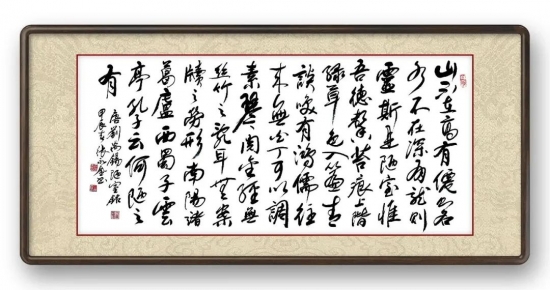 山不在高有僊則名
水不在深有龍則
靈斯是陋室惟
吾德馨苔痕上階
緑草色入簾青
談笑有鴻儒往
来無白丁可以調
素琴閱金經無
絲竹之亂耳無案
牘之勞形南陽諸
葛廬西蜀子雲
亭孔子云何陋之
有
唐劉禹錫陋室銘
甲辰